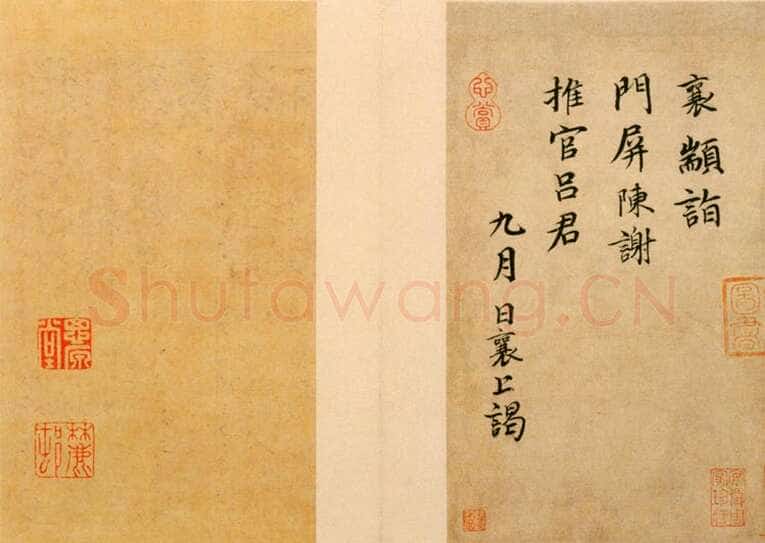 襄顓詣
門屏陳謝
推官呂君
九月日襄上謁
Shufawang.CN